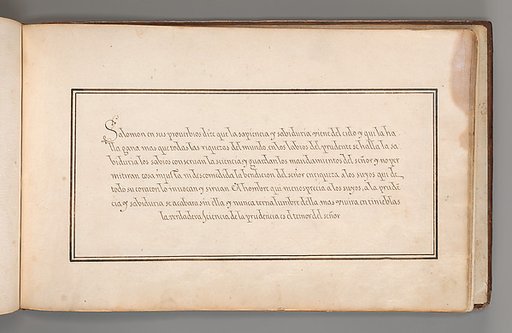 Salomon en sus prouerbios dize que la sapiencia y sabiduria viene del cielo y qui la ha
lla gana mas que todas las riquezas del mundo en los labios del prudente se halla la sa
biduria los sabios conseruan la sciencia y guardan los mandamientos del señor y no per
mitiran cosa injusta ni descomedida la bendicion del señor enriqueze a los suyos que de
todo su coracon la inuocan y siruan El hombre que menosprecia a los suyos, a la prudē
cia y sabiduria se acabara sin ella y nunca terna lumbre della mas viuira en tinieblas
la verdadera sciencia de la prudencia es el temor del señor